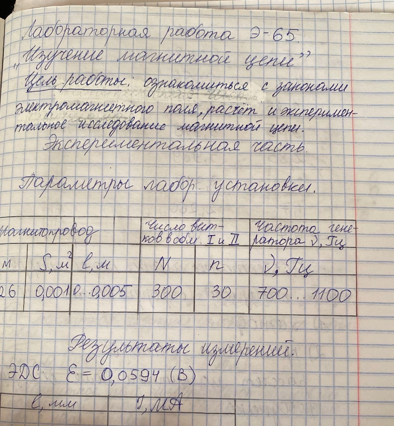 Лабораторная работа Э-65
„Изучение магнитной цепи”
Цель работы: ознакомиться с законами
электромагнитного поля, расчёт и эксперимен-
тальное исследование магнитной цепи.
Эксперементальная часть
Параметры лабор. установки.
Магнитопровод Число вит-ков в обм. I и II Частота гене-ратора ν, Гц
м S, м² l, м N n ν, Гц
26 0,001 0...0,005 300 30 700...1100
Результаты измерений.
ЭДС ε = 0,0594 (В)
l, мм I, мА